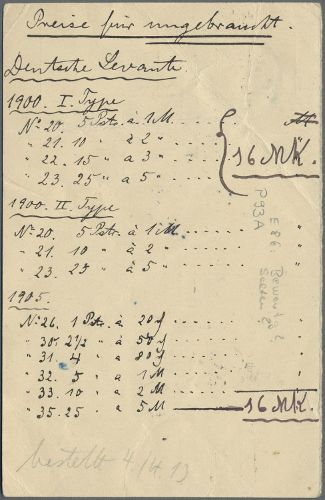 Preise für ungebraucht.
Deutsche Levante.
1900. I. Type
No 20. 5 Pstr. à 1 M . . . . .
" 21. 10 " à 2 " . . . . .
" 22. 15 " a 3 " . . . . .
" 23. 25 " a 5 " . . . . .
16 MK.
1900. II. Type
No 20. 5 Pstr. à 1 M . . . . "
" 21. 10 " à 2 " . . . . "
" 23. 25 " à 5 " . . . . "
1905.
No 26. 1 Pst. à 20 ₰ . . . .
" 30. 2 1/2 " à 50 ₰ . . . .
" 31. 4 " a 80 ₰ . . . .
" 32. 5 " a 1 M . . . .
" 33. 10 " a 2 M . . . .
" 35. 25 " a 5 M 16 MK.
P93A
bestellt 4/4.13